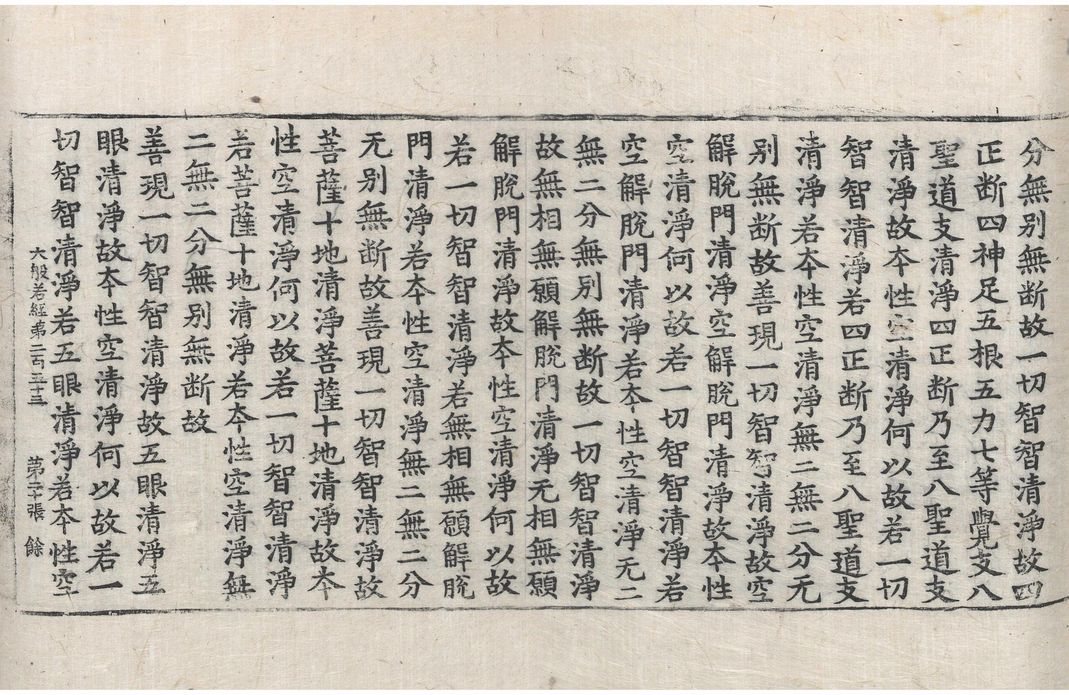 分無别無断故一切智智清淨故四
正断四神足五根五力七等覺支八
聖道支清淨四正断乃至八聖道支
清淨故夲性空清淨何以故若一切
智智清淨若四正断乃至八聖道支
清淨若夲性空清淨無二無二分无
别無断故善現一切智智清淨故空
解脫門清淨空解脫門清淨故夲性
空清淨何以故若一切智智清淨若
空解脫門清淨若夲性空清淨无二
無二分無別無断故一切智智清淨
故無相無願解脫門清淨无相無願
解脫門清淨故夲性空清淨何以故
若一切智智清淨若無相無願解脫
門清淨若夲性空清淨無二無二分
无别無断故善現一切智智清淨故
菩薩十地清淨菩薩十地清淨故夲
性空清淨何以故若一切智智清淨
若菩薩十地清淨若夲性空清淨無
二無二分無别無断故
善現一切智智清淨故五眼清淨五
眼清淨故夲性空清淨何以故若一
切智智清淨若五眼清淨若夲性空
大般若経第二百 十三 第 十張 餘